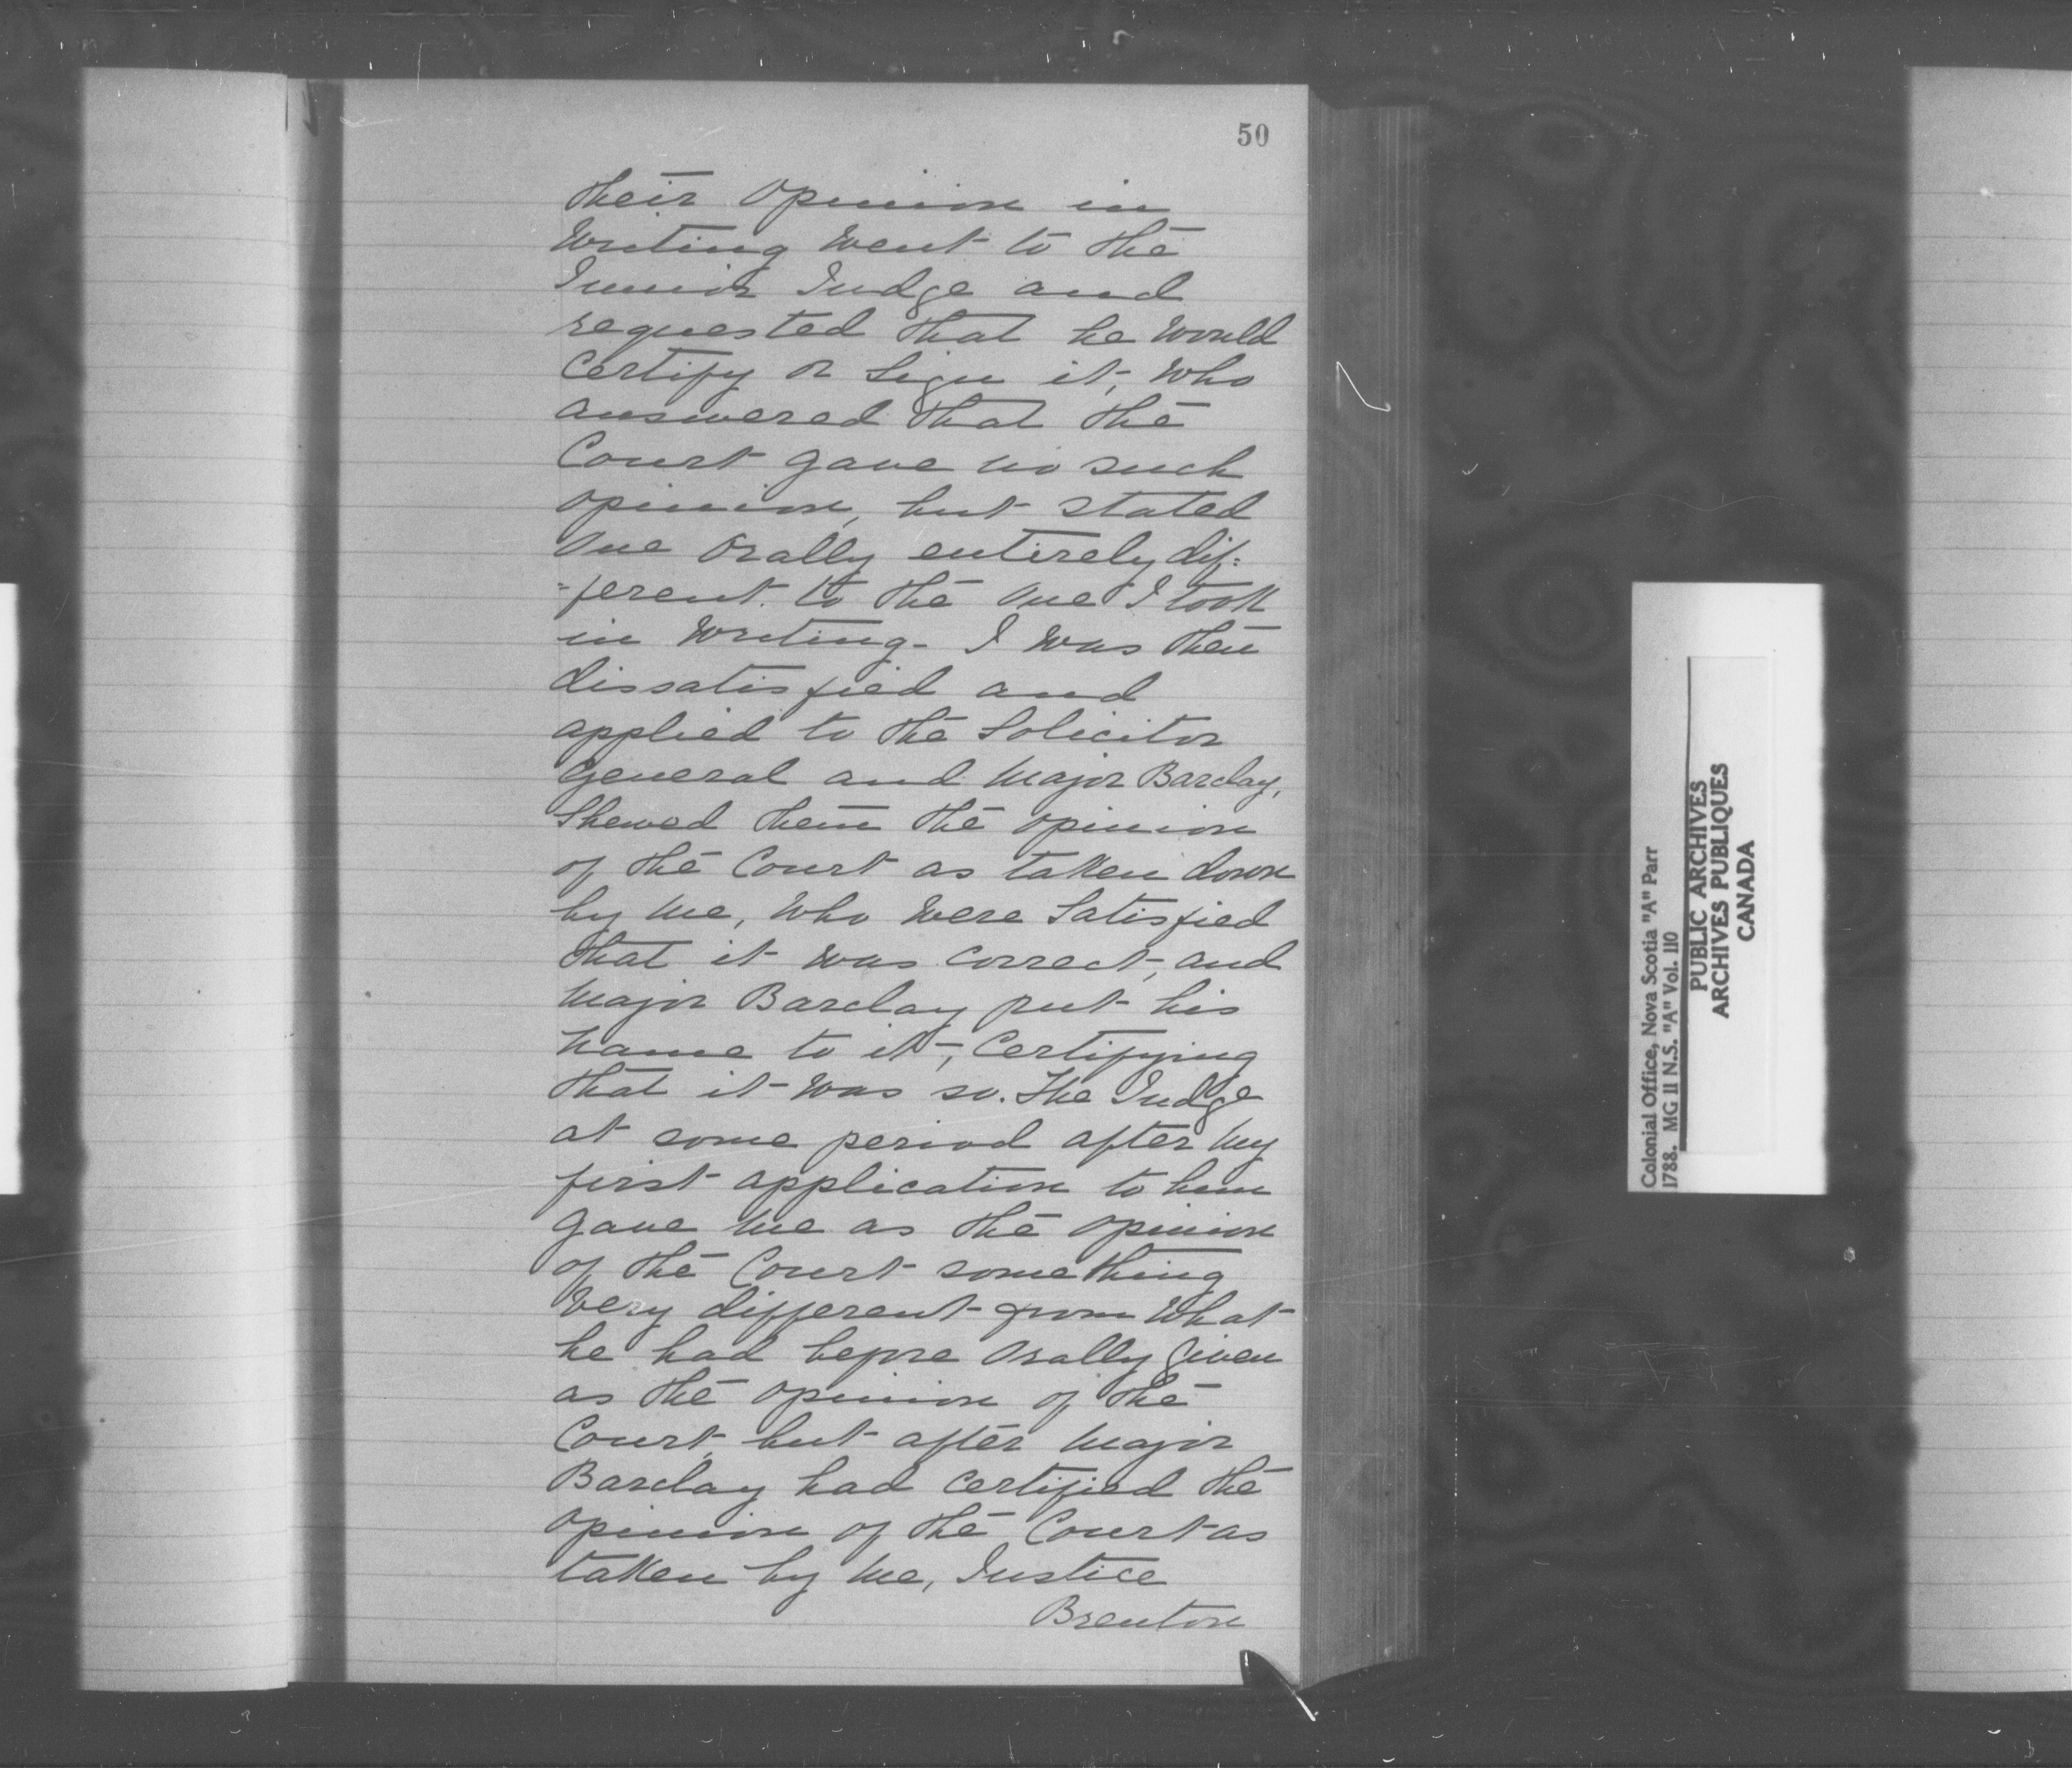 50
their Opinion in
Writing went to the
Junior Judge and
requested that he would
Certify or Sign it, Who
answered that the
Court gave no such
opinion, but stated
One Orally entirely dif=
=ferent to the One I took
in Writing - I was then
dissatisfied and
applied to the Solicitor
General and Major Barclay,
Shewed them the opinion
of the Court as taken down
by me, Who were Satisfied
that it was correct, and
Major Barclay put his
name to it, Certifying
that it was so. The Judge
at some period after my
first application to him
gave me as the Opinion
of the Court something
Very different from What
he had before Orally Given
as the Opinion of the
Court, but after Major
Barclay had Certified the
Opinion of the Court as
taken by me, Justice
Brenton
Colonial Office, Nova Scotia "A" Parr
1788. MG 11 N.S. "A" Vol. 110
PUBLIC ARCHIVES
ARCHIVES PUBLIQUES
CANADA